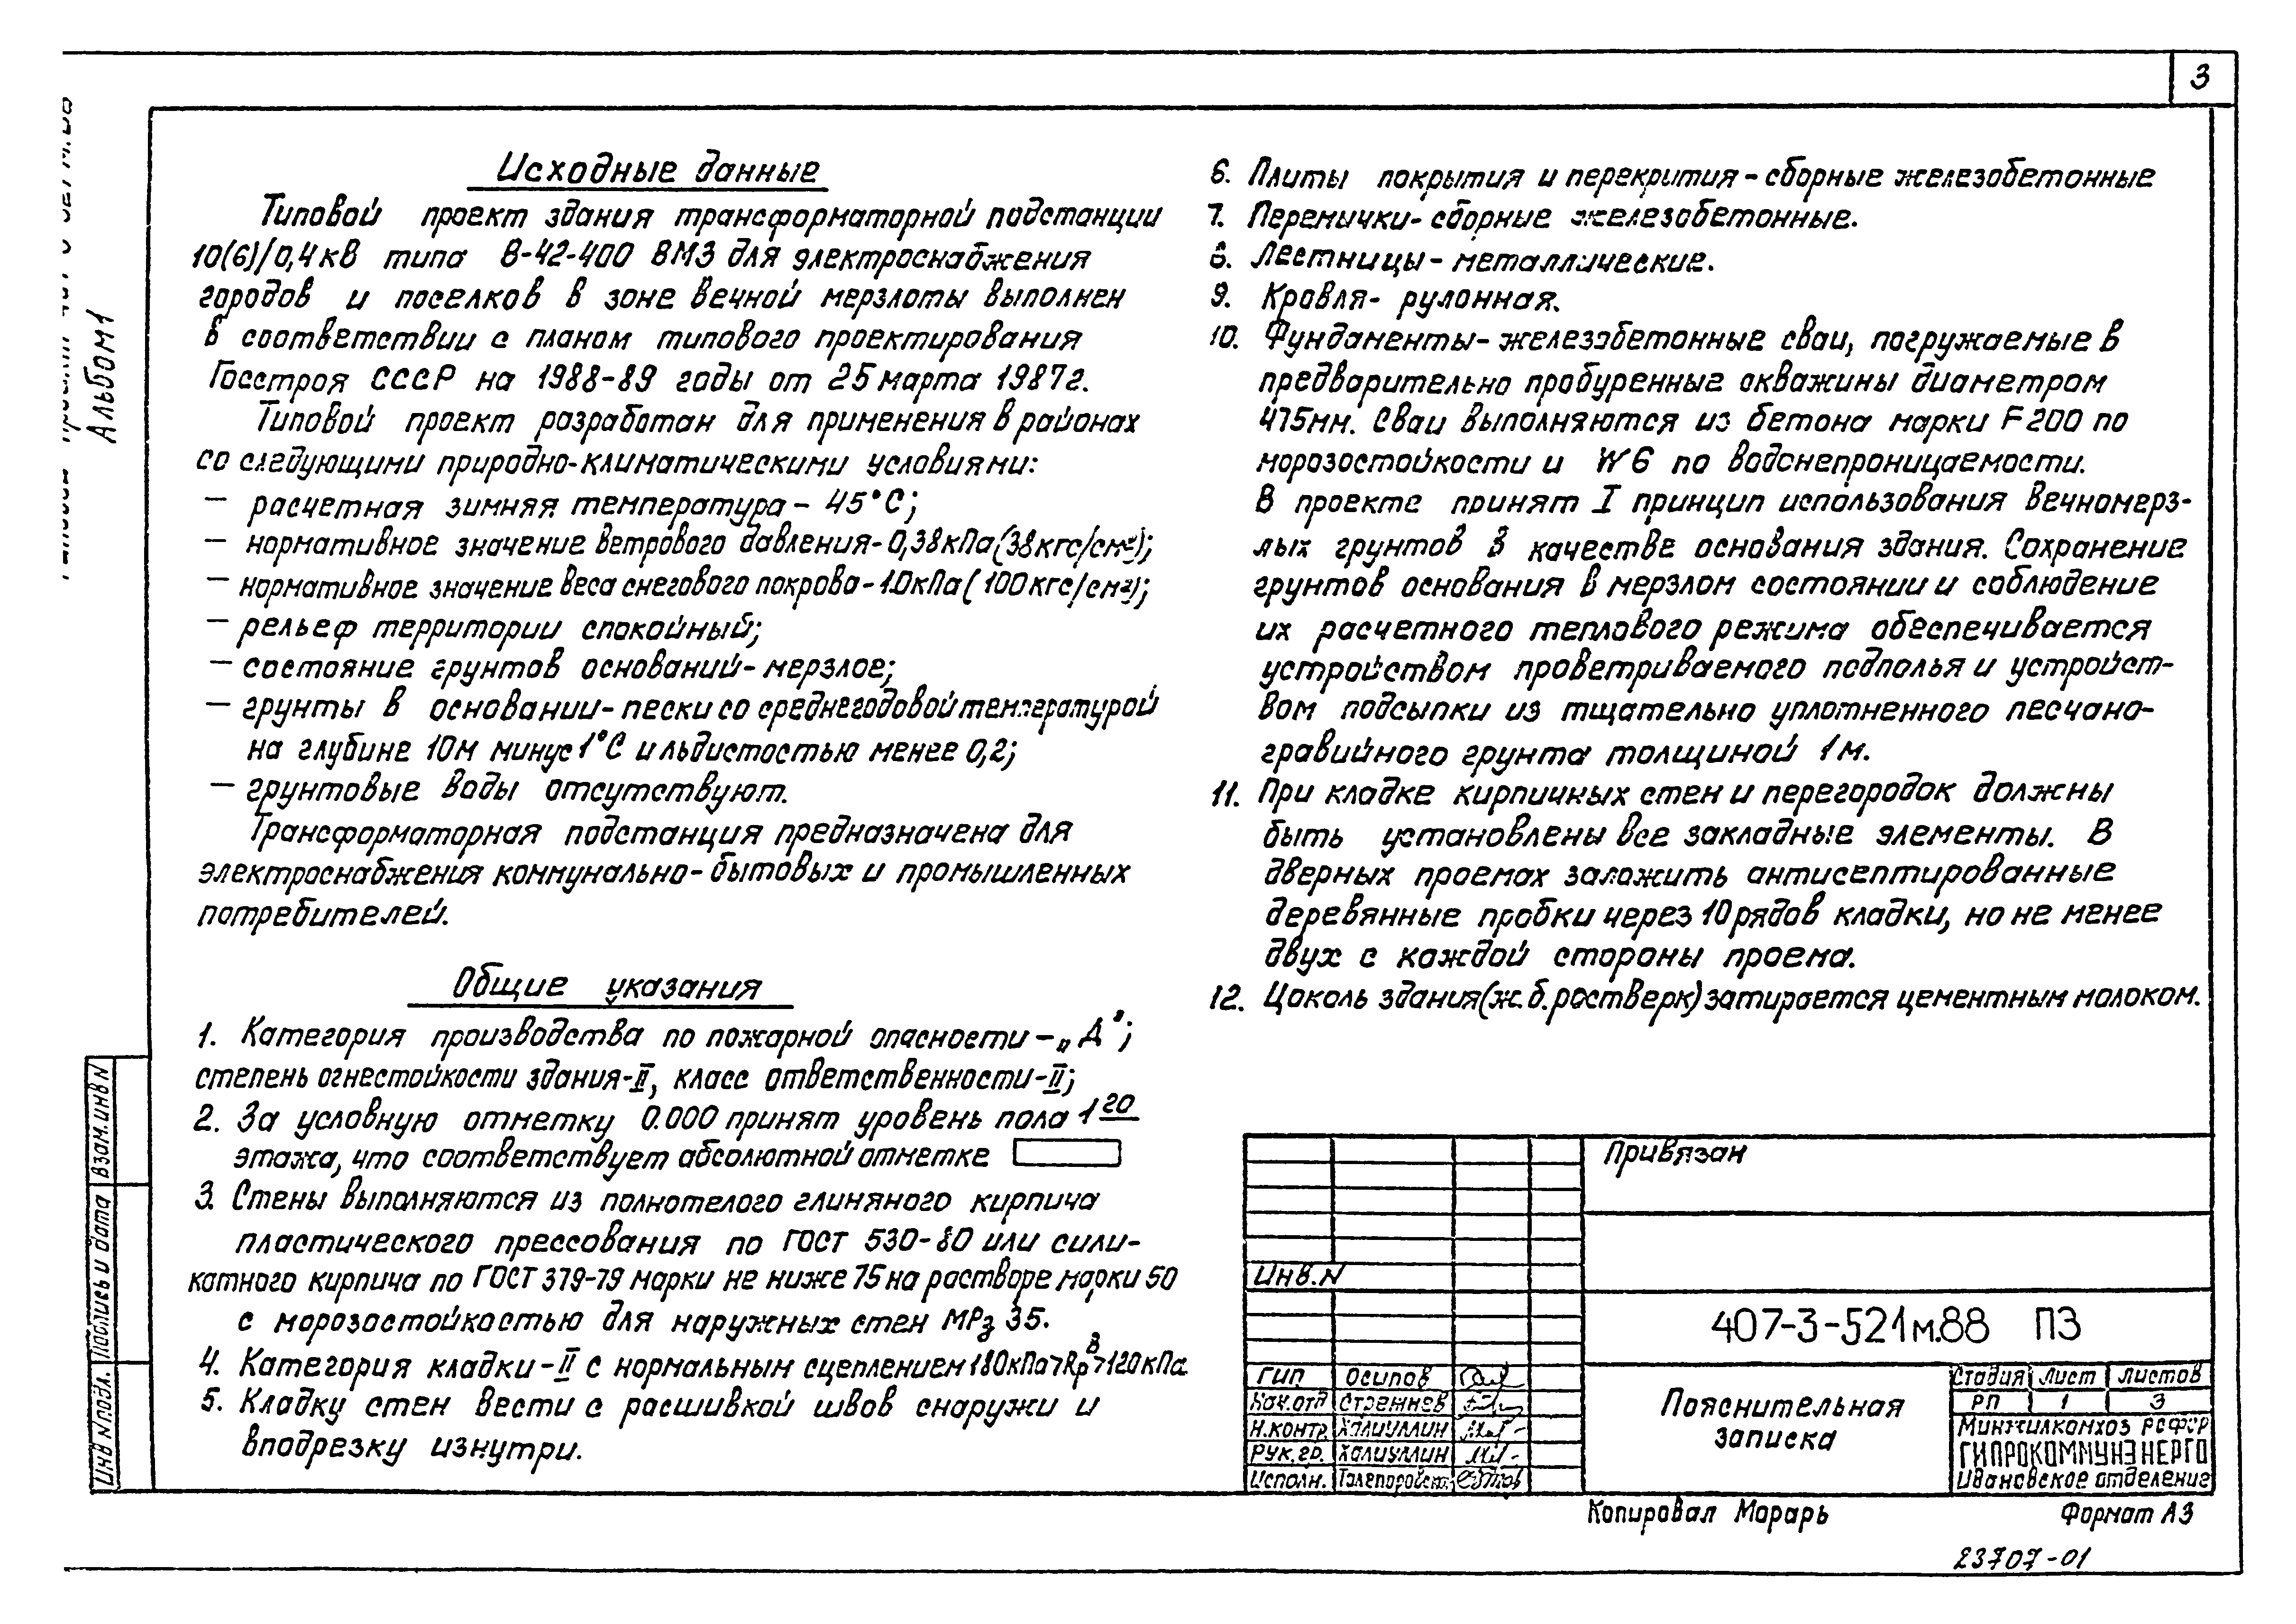 3
Альбом 1
Исходные данные
Типовой проект здания трансформаторной подстанции
10(6)/0,4кВ типа В-42-400 ВМЗ для электроснабжения
городов и поселков в зоне вечной мерзлоты выполнен
в соответствии с планом типового проектирования
Госстроя СССР на 1988-89 годы от 25 марта 1987г.
Типовой проект разработан для применения в районах
со следующими природно-климатическими условиями:
— расчетная зимняя температура - 45°С;
— нормативное значение ветрового давления-0,38кПа(38кгс/см²);
— нормативное значение веса снегового покрова-1.0кПа(100кгс/см²);
— рельеф территории спокойный;
— состояние грунтов оснований-мерзлое;
— грунты в основании-пески со среднегодовой температурой
на глубине 10м минус 1°С и льдистостью менее 0,2;
— грунтовые воды отсутствуют.
Трансформаторная подстанция предназначена для
электроснабжения коммунально-бытовых и промышленных
потребителей.
Общие указания
1. Категория производства по пожарной опасности-„Д";
степень огнестойкости здания-II, класс ответственности-II;
2. За условную отметку 0.000 принят уровень пола 1го
этажа, что соответствует абсолютной отметке
3. Стены выполняются из полнотелого глиняного кирпича
пластического прессования по ГОСТ 530-80 или сили-
катного кирпича по ГОСТ 379-79 марки не ниже 75 на растворе марки 50
с морозостойкостью для наружных стен МРз 35.
4. Категория кладки-II с нормальным сцеплением 180кПа>Rрᵇ>120кПа
5. Кладку стен вести с расшивкой швов снаружи и
вподрезку изнутри.
6. Плиты покрытия и перекрития-сборные железобетонные
7. Перемычки-сборные железобетонные.
8. Лестницы-металлические.
9. Кровля-рулонная.
10. Фундаменты-железобетонные сваи, погружаемые в
предварительно пробуренные скважины диаметром
475мм. Сваи выполняются из бетона марки F200 по
морозостойкости и W6 по водонепроницаемости.
В проекте принят I принцип использования вечномерз-
лых грунтов в качестве основания здания. Сохранение
грунтов основания в мерзлом состоянии и соблюдение
их расчетного теплового режима обеспечивается
устройством проветриваемого подполья и устройст-
вом подсыпки из тщательно уплотненного песчано-
гравийного грунта толщиной 1м.
11. При кладке кирпичных стен и перегородок должны
быть установлены все закладные элементы. В
дверных проемах заложить антисептированные
деревянные пробки через 10 рядов кладки, но не менее
двух с каждой стороны проема.
12. Цоколь здания(ж.б.ростверк) затирается цементным молоком.
Взам.инв N
Подпись и дата
Инв N подл.
Привязан
Инв.N
407-3-521м.88 ПЗ
ГИП Осипов
Нач.отд
Н.контр. Халиуллин
Рук.гр. Халиуллин
Исполн.
Пояснительная
записка
Стадия Лист Листов
РП 1 3
Минжилкомхоз РСФСР
ГИПРОКОММУНЭНЕРГО
Ивановское отделение
Копировал Морарь
Формат А3
23707-01